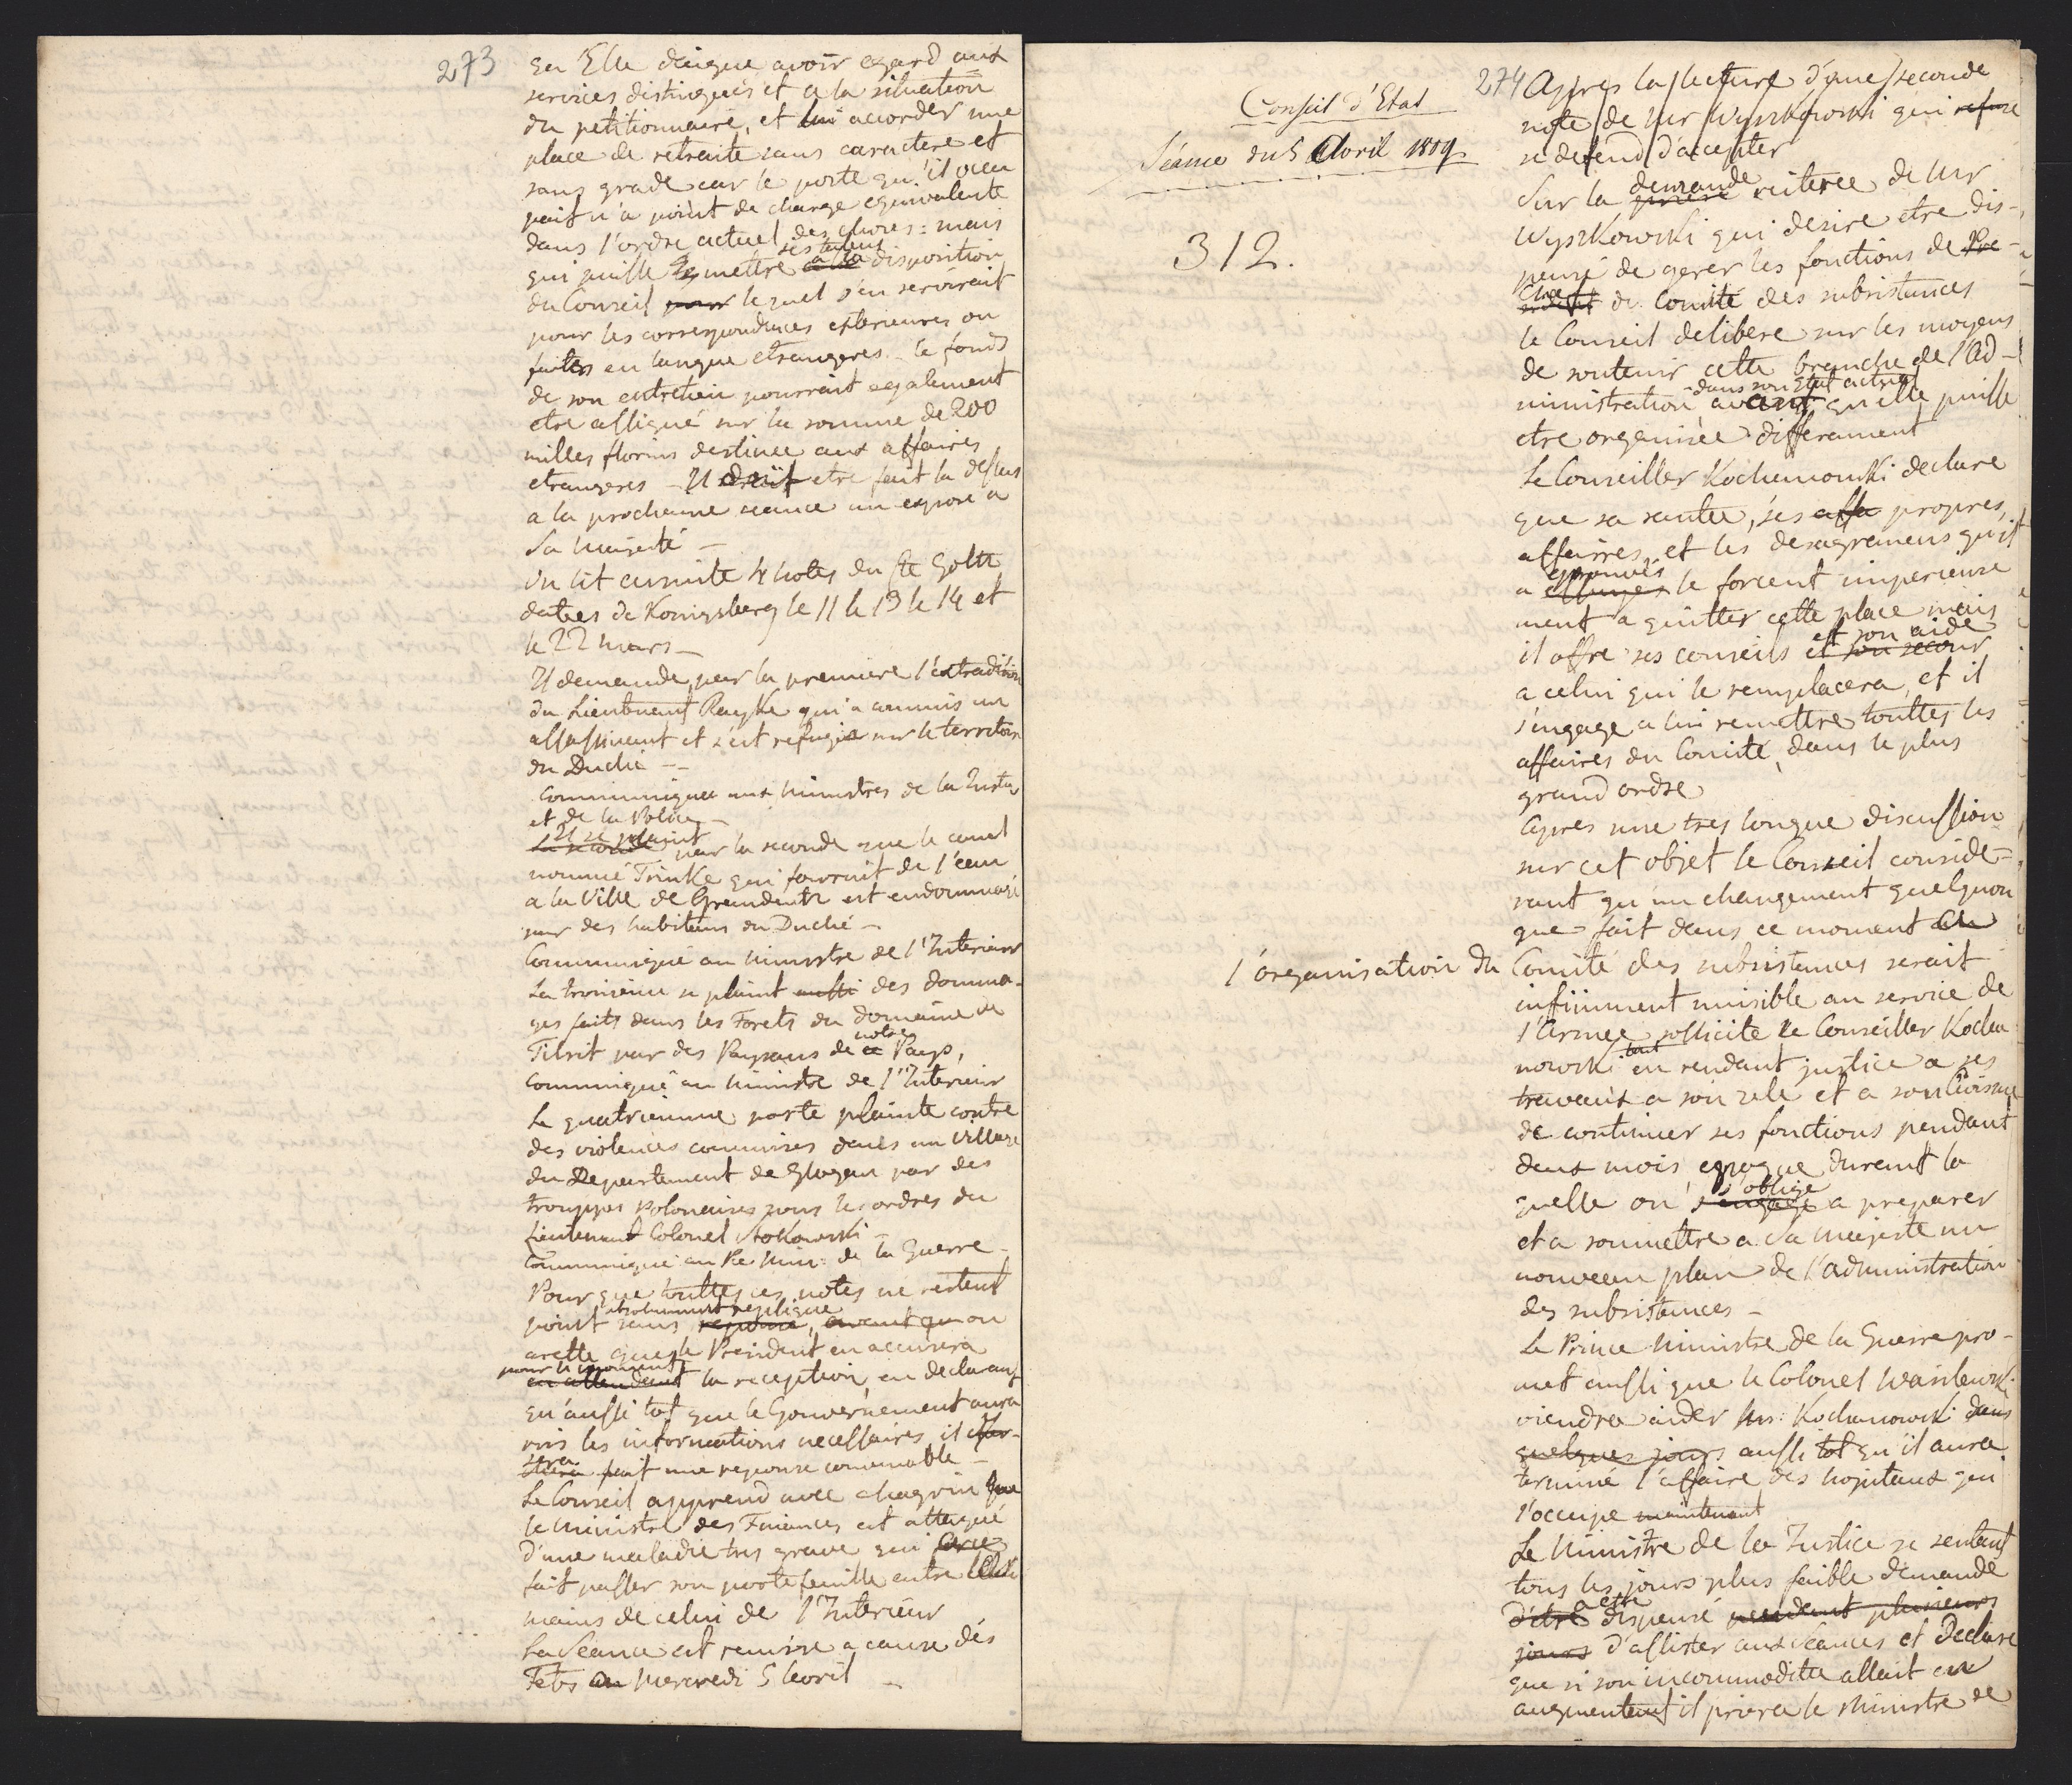 273
qu'Elle daigne avoir egard aux
services distingués et a la situation
du petitionnaire, et lui accorder une
place de retraite sans caractere et
sans grade car le poste qu'il occu
pait n'a point de charge equivalente
dans l'ordre actuel des choses: mais
qui puisse mettre ses talens a la disposition
du Conseil pour lequel s'en servirait
pour les correspondances exterieures ou
faites en langue etrangeres - le fonds
de son entretien pourrait egalement
etre assigné sur la somme de 200
milles florins destinee aux affaires
etrangeres - Il doit etre fait la dessus
a la prochaine seance un exposé a
Sa Majesté -
On lit ensuite 4 notes du Cte Goltz
datees de Konigsberg le 11 le 13 le 14 et
le 22 mars -
Il demande par la premiere l'extradition
du Lieutenant Rayke qui a commis un
assassinat et s'est refugié sur le territoire
du Duché --
Communiquee aux Ministres de la Justice
et de la Police -
La seconde Il se plaint par la seconde que le canal
nommé Trinke qui fournit de l'eau
a la Ville de Graudentz est endommagé
par des habitans du Duché -
Communiqué au Ministre de l'Interieur
La troisieme se plaint aussi des domma-
ges faits dans les Forets du domaine de
Tilsit par des Paysans de ce notre Pays,
communiqué au Ministre de l'Interieur
La quatrieme porte plainte contre
des violences commises dans un Village
du Departement de Glogau par des
trouppes Polonaises sous les ordres du
Lieutenant Colonel Stokowski -
Communiqué au Pce Min: de la Guerre -
Pour que touttes ces notes ne restent
point sans reponse, absolument replique avant qu on
arette que le President en accusera
en attendant pour le moment la reception, en declarant
qu'aussi tot que le Gouvernement aura
pris les informations necessaires, il
sera fait une reponse convenable -
Le Conseil apprend avec chagrin que
le Ministre des Finances est attaqué
d'une maladie tres grave qui
fait passer son portefeuille entre les
mains de celui de l'Interieur
La Seance est remise a cause des
Fetes au Mercredi 5 Avril -
Conseil d'Etat
Séance du 5 Avril 1809
312.
274 Apres la lecture d'une seconde
note de Mr Wyszkowski qui refuse
se defend d'accepter
Sur la priere demande reiteree de Mr
Wyszkowski qui desire etre dis-
pensé de gerer les fonctions de Pre-
sident Chef du Comité des subsistances
le Conseil delibere sur les moyens
de soutenir cette branche de l'Ad-
ministration dans son Etat actuel avant qu'elle puisse
etre organisée differament
Le Conseiller Kochanowski declare
que sa santee, ses affa propres,
affaires, et les desagremens qu'il
a essuyes eprouvés le forcent imperieuse
ment a quitter cette place mais
il offre ses conseils et son secour et son aide
a celui qui le remplacera, et il
s'engage a lui remettre touttes les
affaires du Comité, dans le plus
grand ordre
Apres une tres longue discussion
sur cet objet le Conseil conside-
rant qu'un changement quelquon
que fait dans ce moment au
l'organisation du Comité des subsistances serait
infiniment nuisible au service de
l'Armee sollicite le Conseiller Kocha
nowski tout en rendant justice a ses
travaux a son zele et a son Civisme
de continuer ses fonctions pendant
deux mois epoque durant la
quelle on s'engage s'oblige a preparer
et a soumettre a Sa Majeste un
nouveau plan de l'administration
des subsistances -
Le Prince Ministre de la Guerre pro-
met aussi que le Colonel Wasilewski
viendra aider Mr: Kochanowski dans
quelques jours aussi tot qu'il aura
terminé l'affaire des hopitaux qui
l'occupe maintenant
Le Ministre de la Justice se sentant
tous les jours plus faible demande
d'etre a etre dispensé pendant plusieurs
jours d'assister aux Seances et Declare
que si son incommodité allait en
augmentant il priera le Ministre de